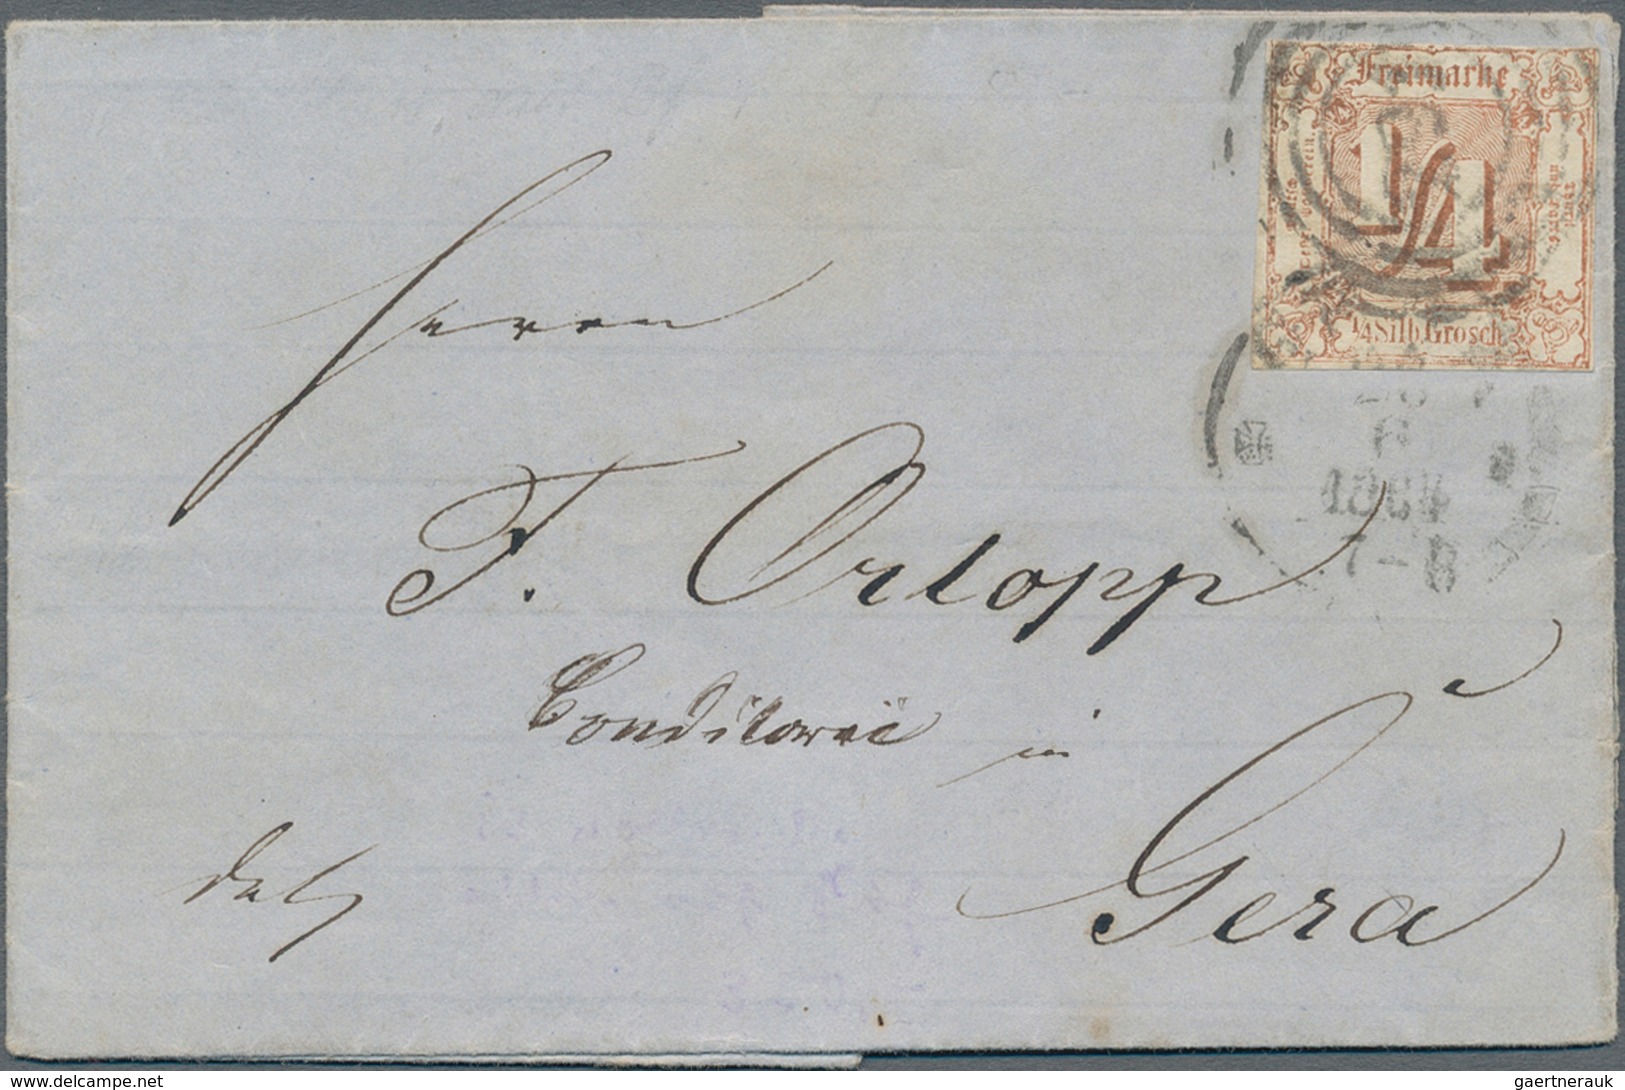 Freimarke
1/4
1/4 Silb. Grosch.
1864
7-8
Herrn
F. Ortopp
Conditorei in
Gera
gaertnerauk